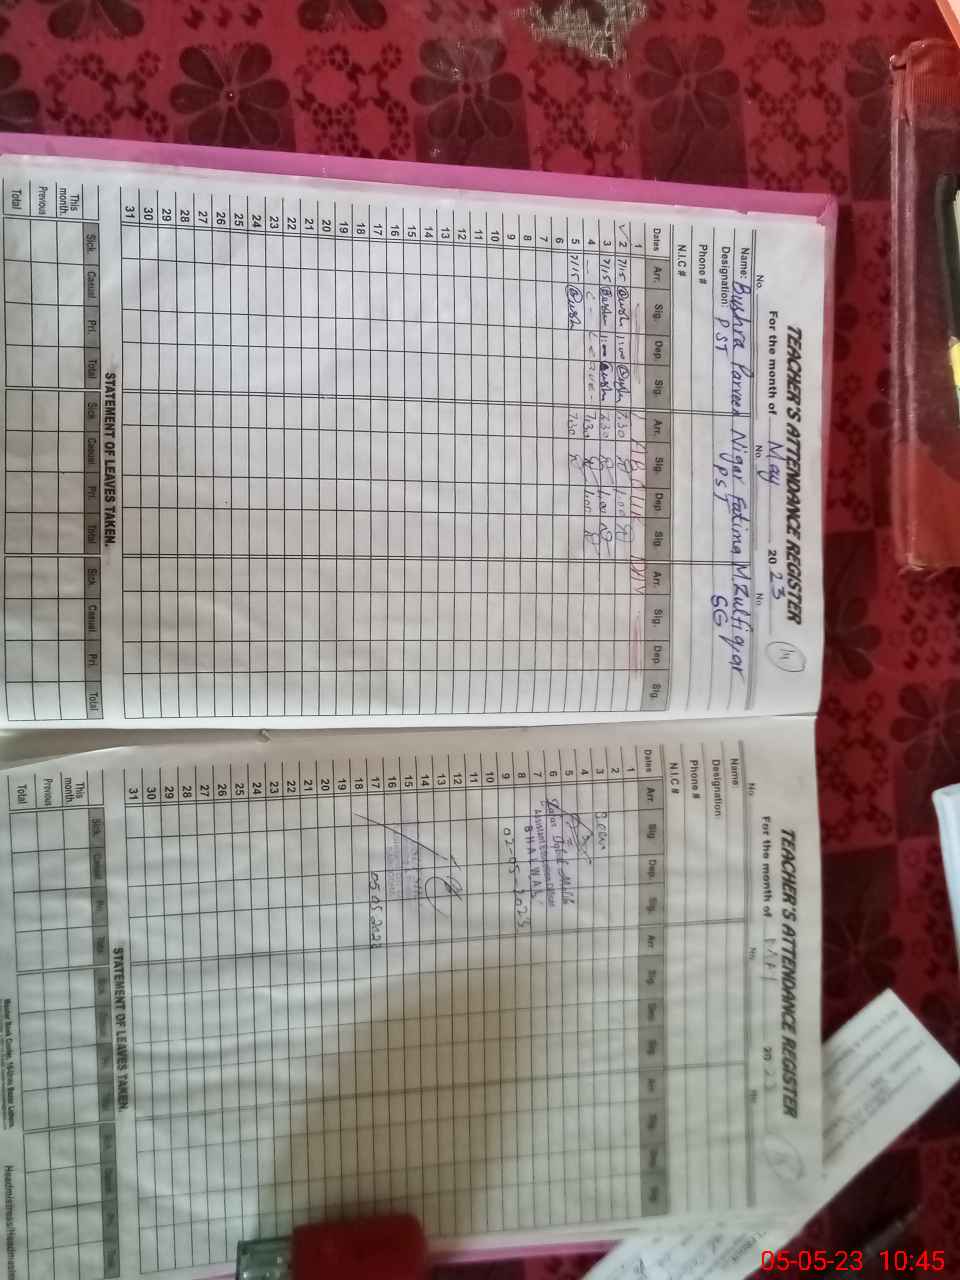 TEACHER'S ATTENDANCE REGISTER
For the month of May 2023
No. No. No.
Name: Bushra Parveen Nigar Fatima M. Zulfiqar
Designation: PST PST SG
Phone #
N.I.C #
Dates Arr. Sig. Dep. Sig. Arr. Sig. Dep. Sig. Arr. Sig. Dep. Sig.
1
2 7/15 Bush 1:00 Bush 7.30 1.00
3 7/15 Bush 1:00 Bush 7.30 1.00
4 - C - Leave - 7.30 1.00
5 7/15 Bush 7.30
6
7
8
9
10
11
12
13
14
15
16
17
18
19
20
21
22
23
24
25
26
27
28
29
30
31
STATEMENT OF LEAVES TAKEN.
Sick Casual Pri. Total Sick Casual Pri. Total Sick Casual Pri. Total
This month.
Previous
Total
TEACHER'S ATTENDANCE REGISTER
For the month of 20
No. No. No.
Name:
Designation:
Phone #
N.I.C #
Dates Arr. Sig. Dep. Sig. Arr. Sig. Dep. Sig. Arr. Sig. Dep. Sig.
1
2
3
4
5
6
7
8
9
10
11
12
13
14
15
16
17
18
19
20
21
22
23
24
25
26
27
28
29
30
31
BHALWAL
02-05-2023
05 05 2023
STATEMENT OF LEAVES TAKEN.
Sick Casual Pri. Total Sick Casual Pri. Total Sick Casual Pri. Total
This month.
Previous
Total
Headmistress/Headmaster
05-05-23 10:45